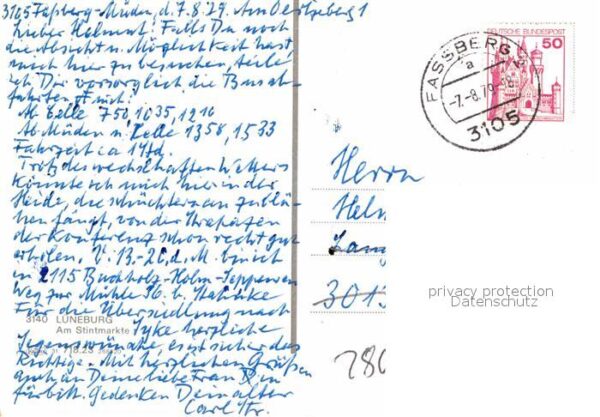 3105 Faßberg-Müden, d. 7.8.79. Am Oertzeberg 1
Lieber Helmut! Falls Du noch
die Absicht u. Möglichkeit hast
mich hier zu besuchen, teile
ich Dir vorsorglich die Busab-
fahrten mit:
Ab Celle 750, 1035, 1210
Ab Müden n. Celle 1358, 1533
Fahrzeit ca 1 Std.
Trotz des wechselhaften Wetters
könnte ich mich hier in der
Heide, die schüchtern an zu blü-
hen fängt, von der Strapazen
der Konferenz schon recht gut
erholen. V. 13.-20. d. M. bin ich
in 2115 Buchholz-Holm-Seppensen
Weg zur Mühle b.
Für die Übersiedlung nach
Syke herzliche
Segenswünsche, es ist sicher das
Richtige. Mit herzlichen Grüßen
auch an Deine liebe Frau in
fürbitt. Gedenken Dein alter
Carl
3140 LÜNEBURG
Am Stintmarkte
DEUTSCHE BUNDESPOST
50
FASSBERG
a
-7.-8.79
3105
Herrn
Helm
Lang
3013
280
privacy protection
Datenschutz